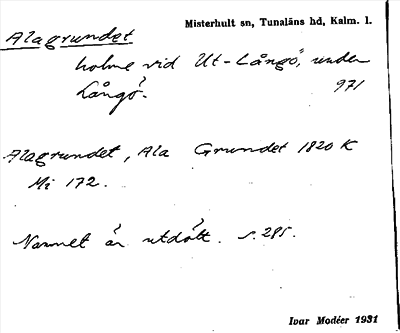 Misterhult sn, Tunaläns hd, Kalm. l.
Alagrundet
holme vid Ut-Långö, under
Långö. 971
Alagrundet, Ala Grundet 1820 K
Mi 172.
Namnet är utdött. s. 285.
Ivar Modéer 1931